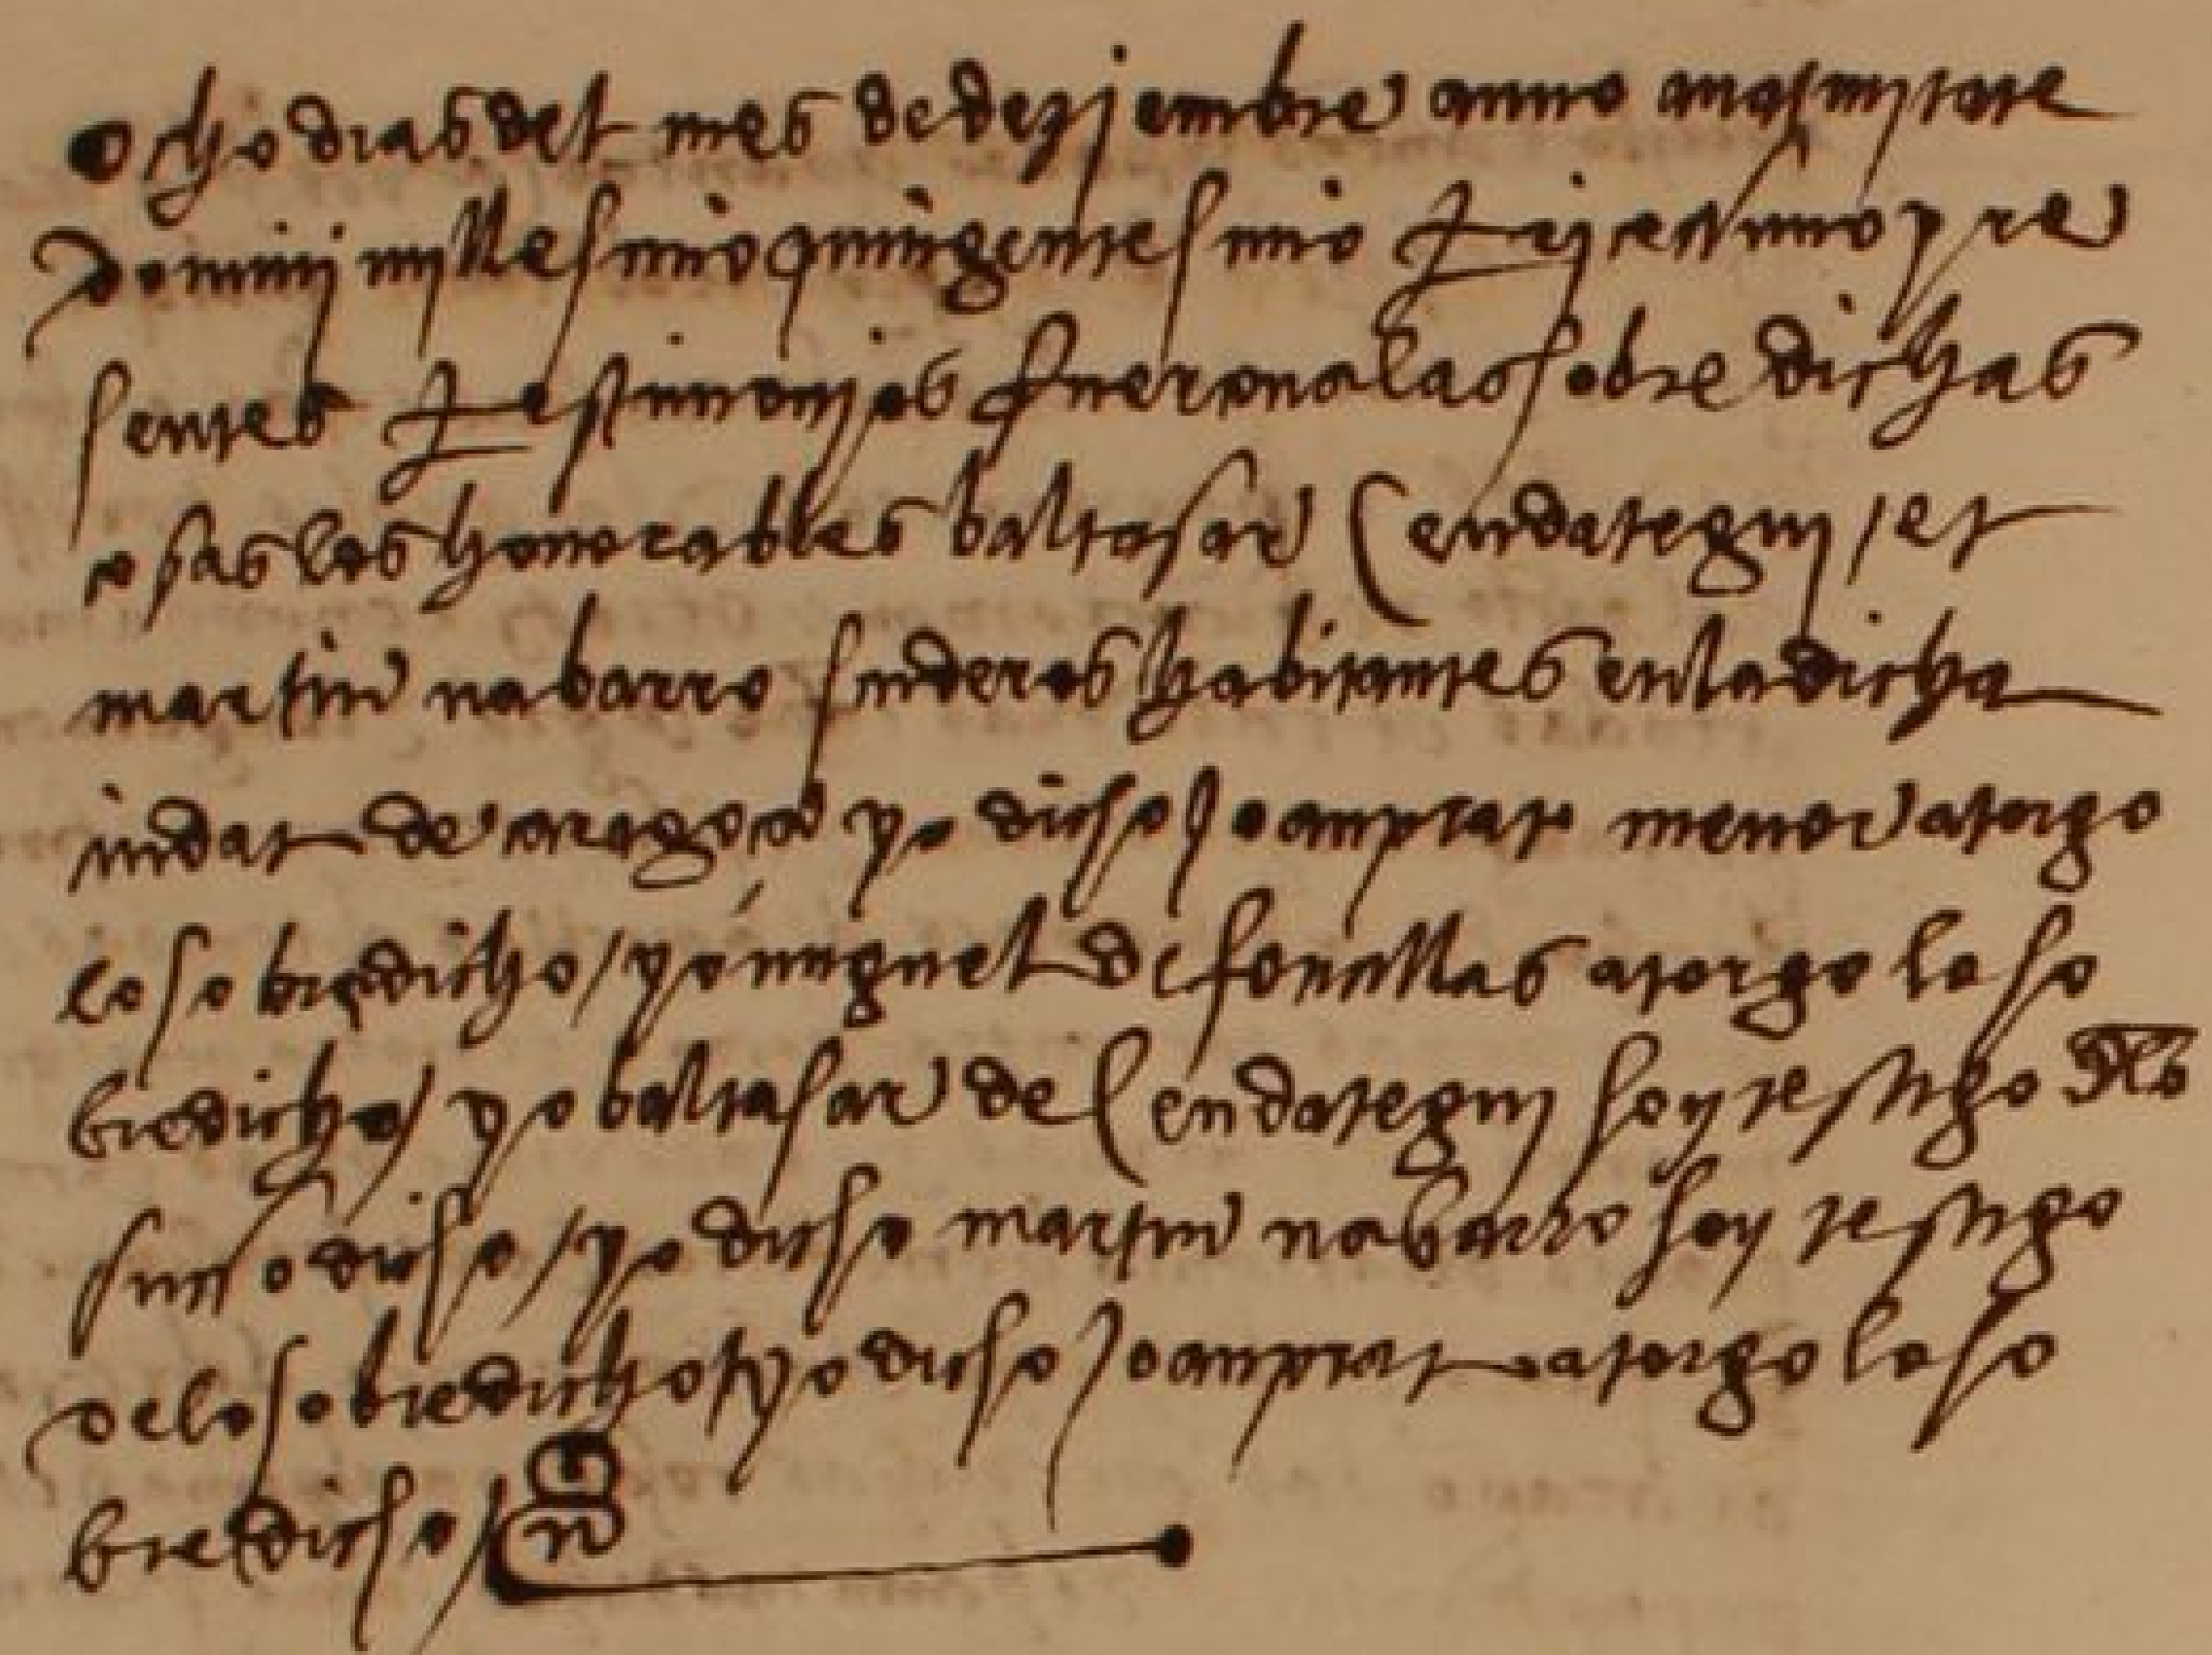 ocho dias del mes de deziembre anno anatiuitate
Dominj millesimo quingentesimo trijcesimo pre
sentes testimonjos fueron a las sobre dichas
cosas los honorables baltasar Cendategui / et
martin nabarro scuderos habitantes en la dicha
ciudat de aragoça yo dicho Joan prat menor atorgo
lo sobredicho / yo miguel de fonillas atorgo lo so
bredicho / yo baltasar de Cendategui soy testigo delo
suso dicho / yo dicho martin nabarro soy testigo
de lo sobredicho / yo dicho Joan prat atorgo lo so
bredicho /